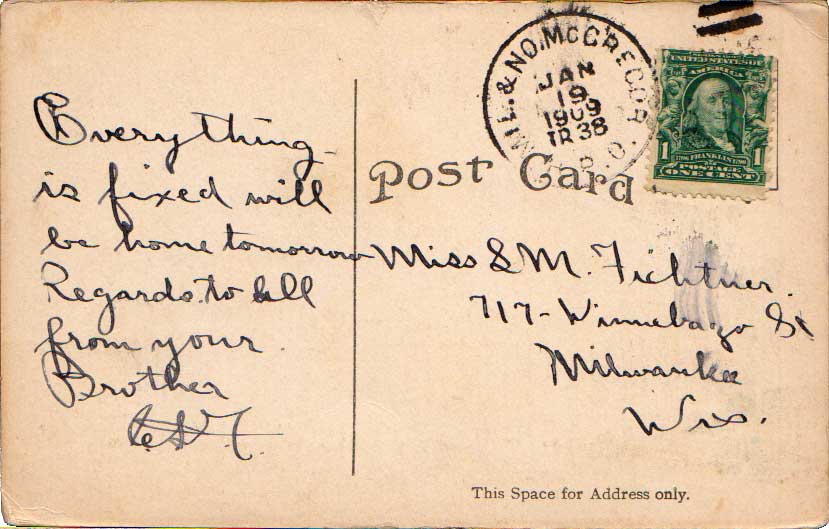 Everything
is fixed will
be home tomorrow
Regards to all
from your
Brother
MIL. & NO. McGREGOR
JAN
19
1909
TR 38
R.P.O.
UNITED STATES OF
AMERICA
1 1
FRANKLIN
POSTAGE
ONE CENT
Post Card
Miss M. Fichtner.
717 - Winnebago St
Milwaukee
Wis.
This Space for Address only.